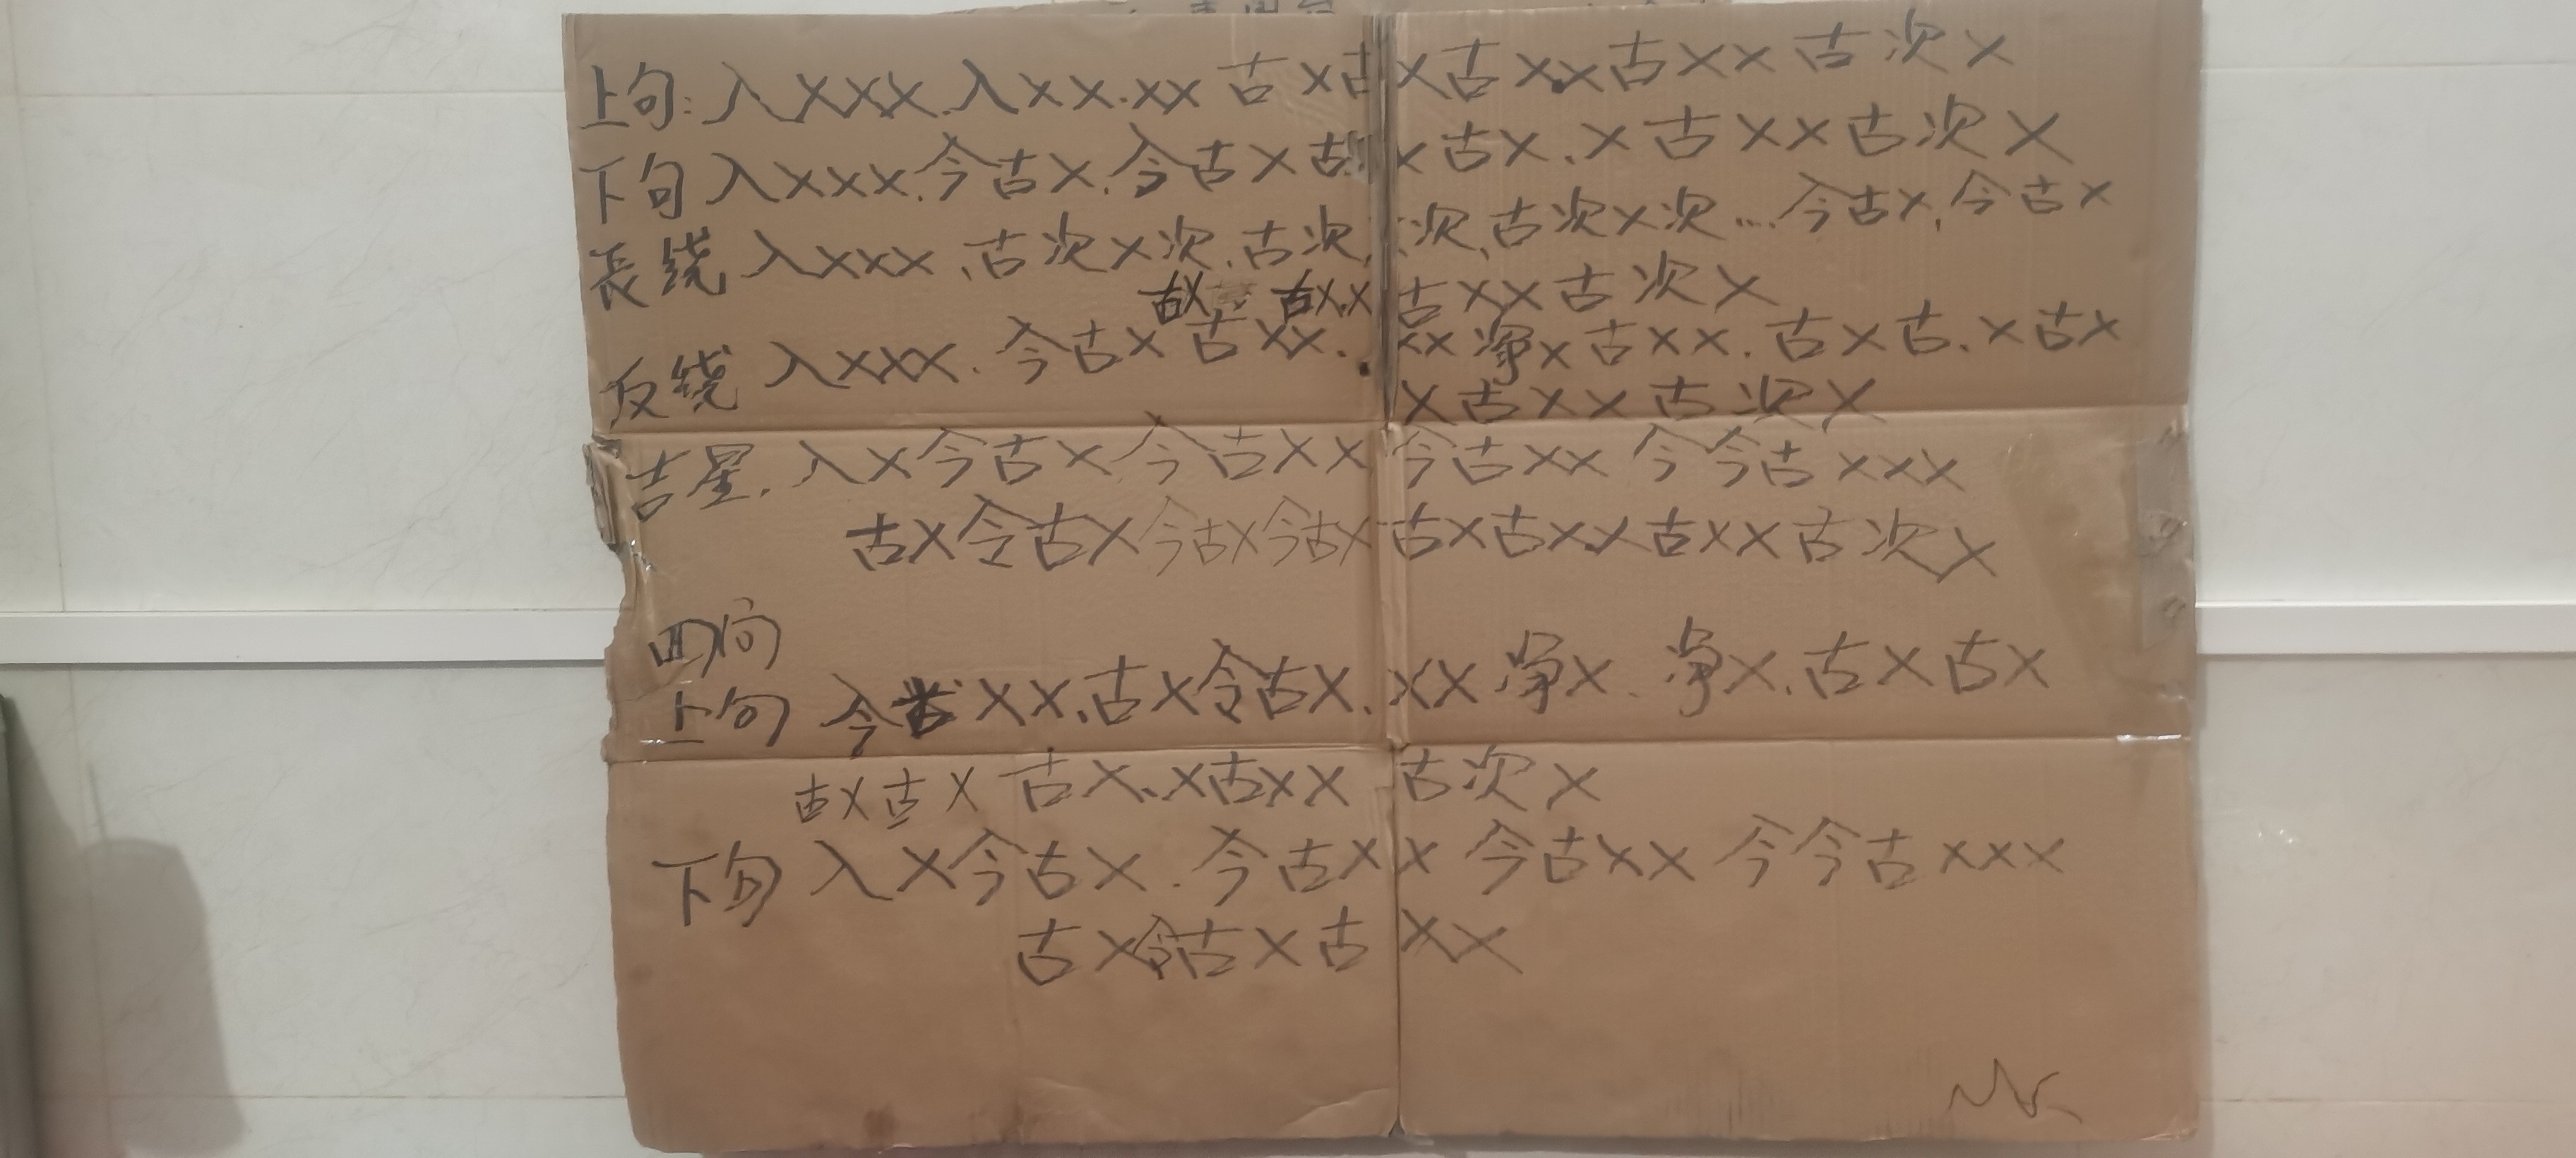 上句: 入XXX.入XX.XX古X古X古XX古XX古次X
下句入XXX.今古X.今古X古X古X.X古XX古次X
長绕入XXX.古次X次.古次 次.古次X次...今古X.今古X
古X 古X.X古XX古次X
反绕入XXX.今古X古XX.XX净X古XX.古X古.X古X
X古XX古次X
吉星.入X今古X今古XX今古XX今今古XXX
古X令古X今古X今古X古X古X.X古XX古次X
四句
上句今古XX.古X令古X.XX净X.净X.古X古X
古X古X古X.X古XX古次X
下句入X今古X.今古XX今古XX今今古XXX
古X令古X古XX